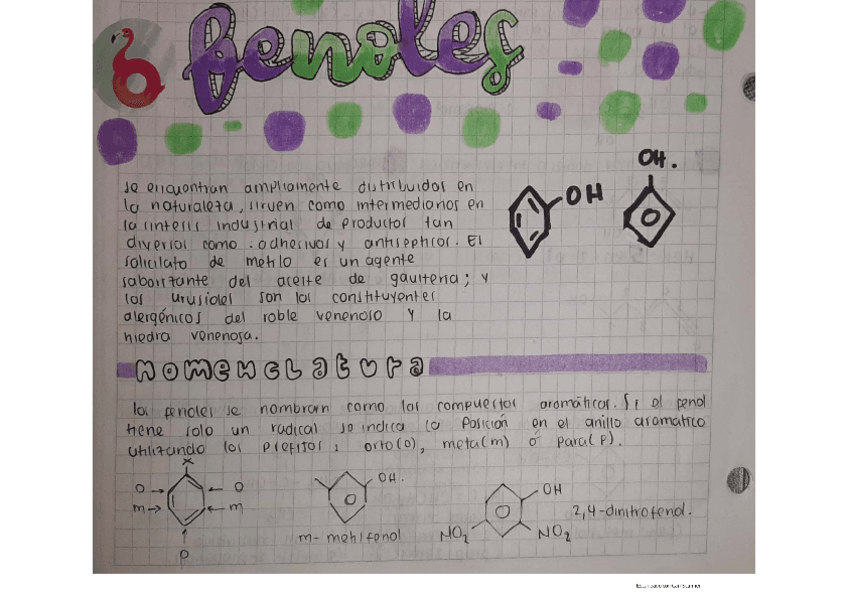 fenoles
se encuentran ampliamente distribuidos en
la naturaleza, sirven como intermediarios en
la sintesis industrial de productos tan
diversos como: adhesivos y antisepticos. El
salicilato de metilo es un agente
saborizante del aceite de gaulteria; y
los urusioles son los constituyentes
alergénicos del roble venenoso y la
hiedra venenosa.
OH
OH.
Nomenclatura
los fenoles se nombrarn como los compuestos aromáticos. Si el fenol
tiene solo un radical se indica la posición en el anillo aromatico
utilizando los prefijos: orto(o), meta(m) ó para(p).
x
o o
m m
p
OH.
m-metilfenol
OH
NO2 NO2
2,4-dinitrofenol.